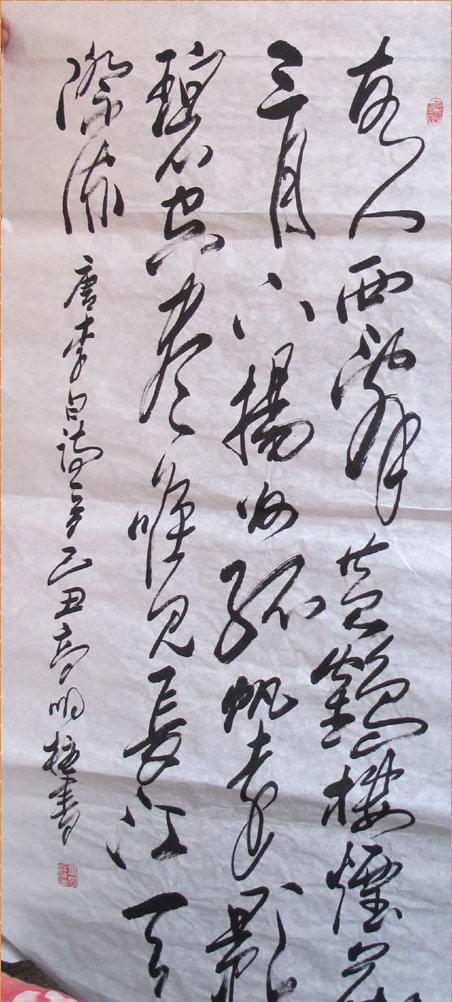 故人西辭黄鶴樓煙花
三月下揚州孤帆遠影
碧空盡唯見長江天
際流
唐李白詩己丑明書